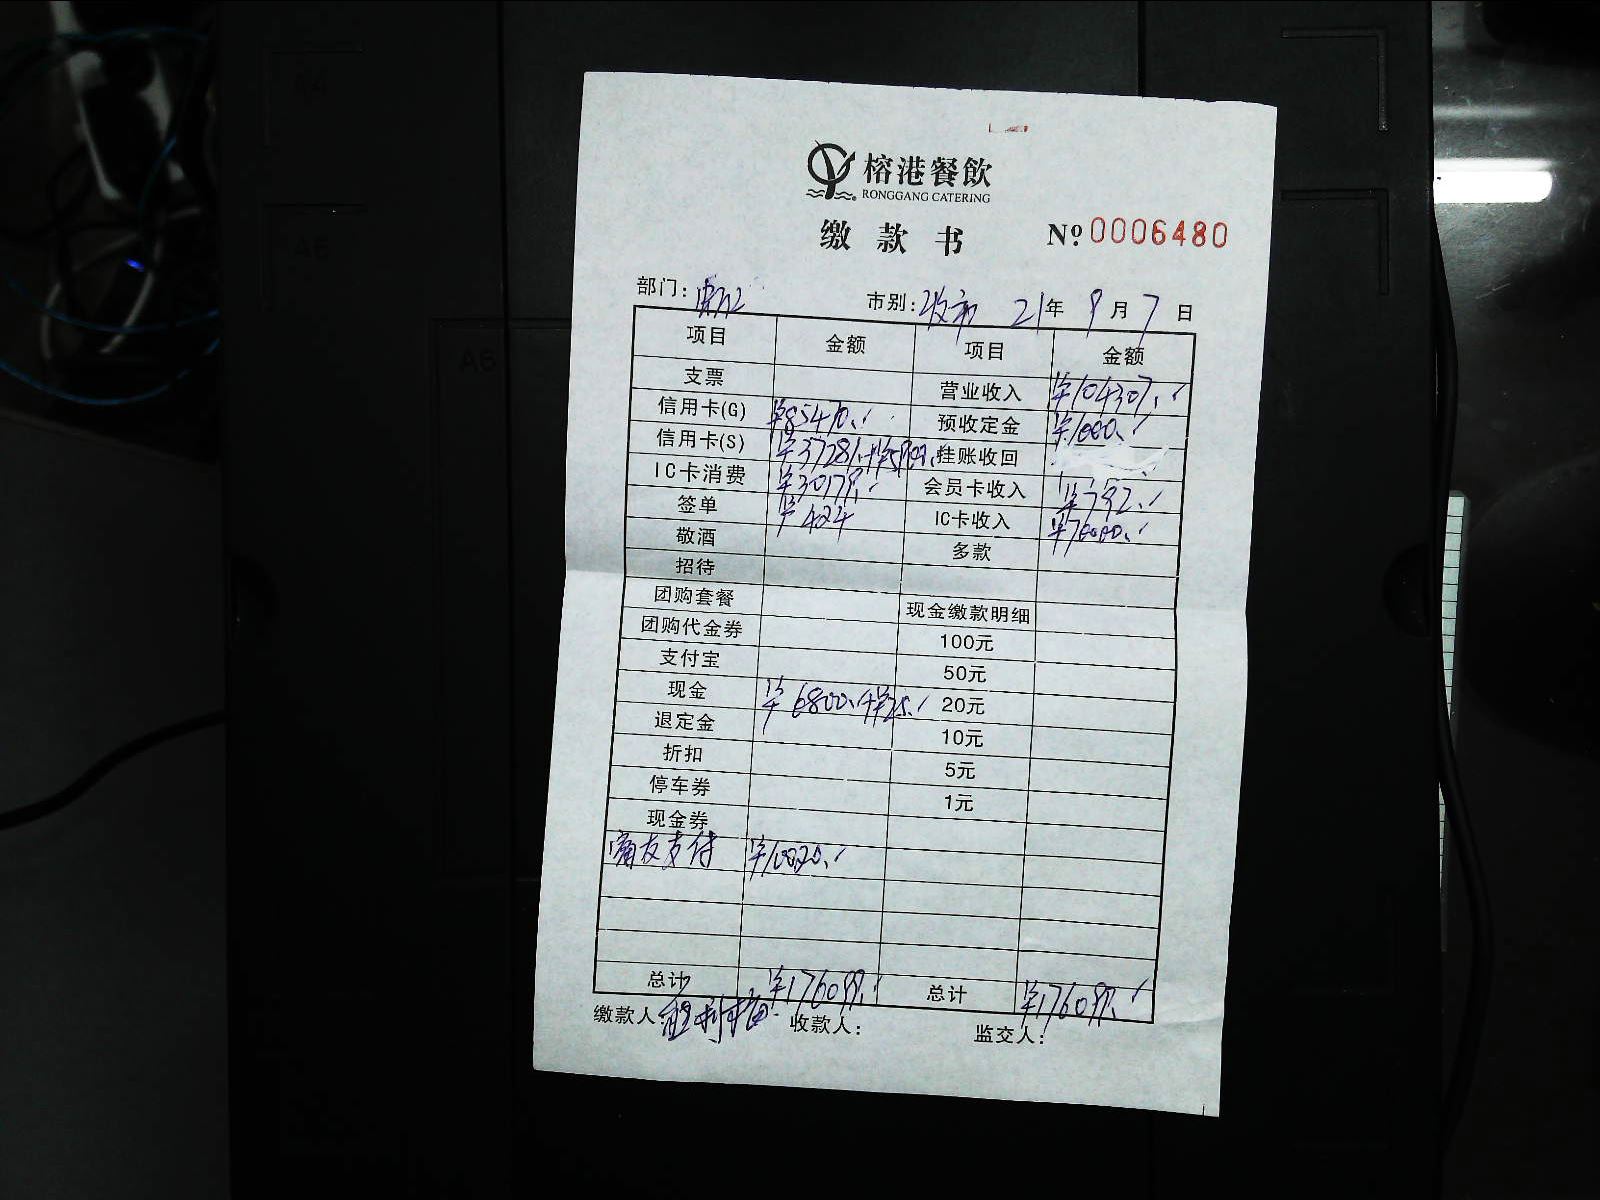 榕港餐飲
RONGGANG CATERING
缴款书 № 0006480
部门: 市别: 21年 9月 7日
项目 金额 项目 金额
支票 营业收入 ¥104307.
信用卡(G) ¥85470. 预收定金 ¥1000.
信用卡(S) ¥37281.+¥5900. 挂账收回
IC卡消费 ¥30179. 会员卡收入 ¥792.
签单 ¥424 IC卡收入 ¥70000.
敬酒 多款
招待
团购套餐 现金缴款明细
团购代金券 100元
支付宝 50元
现金 ¥6800.+¥25. 20元
退定金 10元
折扣 5元
停车券 1元
现金券
支付 ¥10020.
总计 ¥176099. 总计 ¥176099.
缴款人 收款人: 监交人: